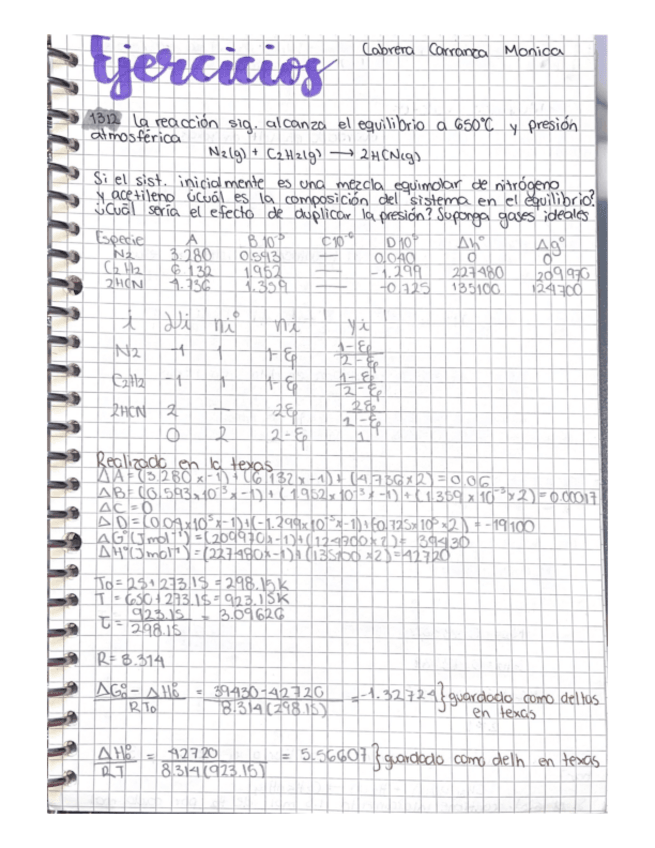 Cabrera Carranza Monica
Ejercicios
13.12 La reacción sig. alcanza el equilibrio a 650°C y presión
atmosférica
N2(g) + C2H2(g) → 2HCN(g)
Si el sist. inicialmente es una mezcla equimolar de nitrógeno
y acetileno ¿Cuál es la composición del sistema en el equilibrio?
¿Cuál sería el efecto de duplicar la presión? Suponga gases ideales
Especie A B 10⁻³ C10⁻⁶ D10⁵ Δh° Δg°
N2 3.280 0.593 — 0.040 0 0
C2H2 6.132 1.952 — -1.299 227480 209970
2HCN 4.736 1.359 — -0.725 135100 124700
i νi ni° ni yi
N2 -1 1 1-Ep 1-Ep/2-Ep
C2H2 -1 1 1-Ep 1-Ep/2-Ep
2HCN 2 — 2Ep 2Ep/2-Ep
0 2 2-Ep 1
Realizado en la texas
ΔA=(3.280x-1)+(6.132x-1)+(4.736x2)=0.06
ΔB=(0.593x10⁻³x-1)+(1.952x10⁻³x-1)+(1.359x10⁻³x2)=0.00017
ΔC=0
ΔD=(0.04x10⁵x-1)+(-1.299x10⁵x-1)+(-0.725x10⁵x2)=-19100
ΔG°(Jmol⁻¹)=(209970x-1)+(124700x2)=39430
ΔH°(Jmol⁻¹)=(227480x-1)+(135100x2)=42720
To=25+273.15=298.15K
T=650+273.15=923.15K
τ=923.15/298.15=3.09626
R=8.314
ΔG°o-ΔH°o/RTo = 39430-42720/8.314(298.15) =-1.32724} guardado como deltas
en texas
ΔH°o/RT = 42720/8.314(923.15) = 5.56607} guardado como delh en texas